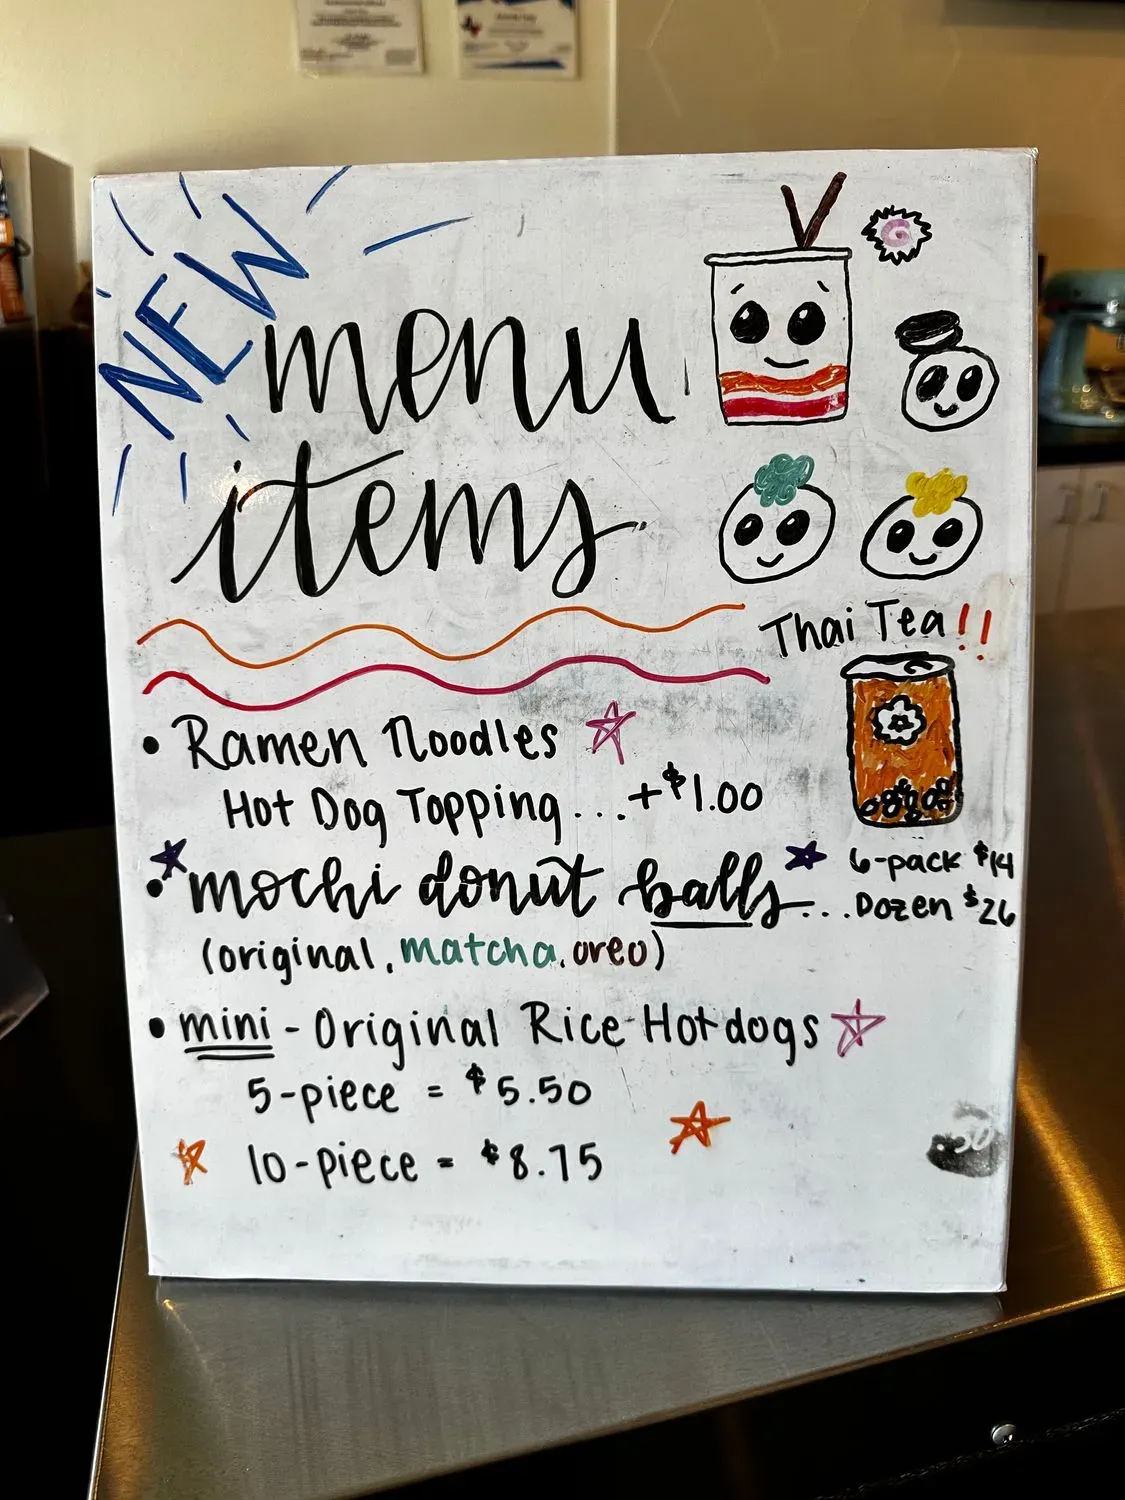 NEW
menu
items
Thai Tea!!
• Ramen Noodles
Hot Dog Topping...+$1.00
• mochi donut balls...
6-pack $14
Dozen $26
(original, matcha, oreo)
• mini - Original Rice Hotdogs
5-piece = $5.50
10-piece = $8.75
.50